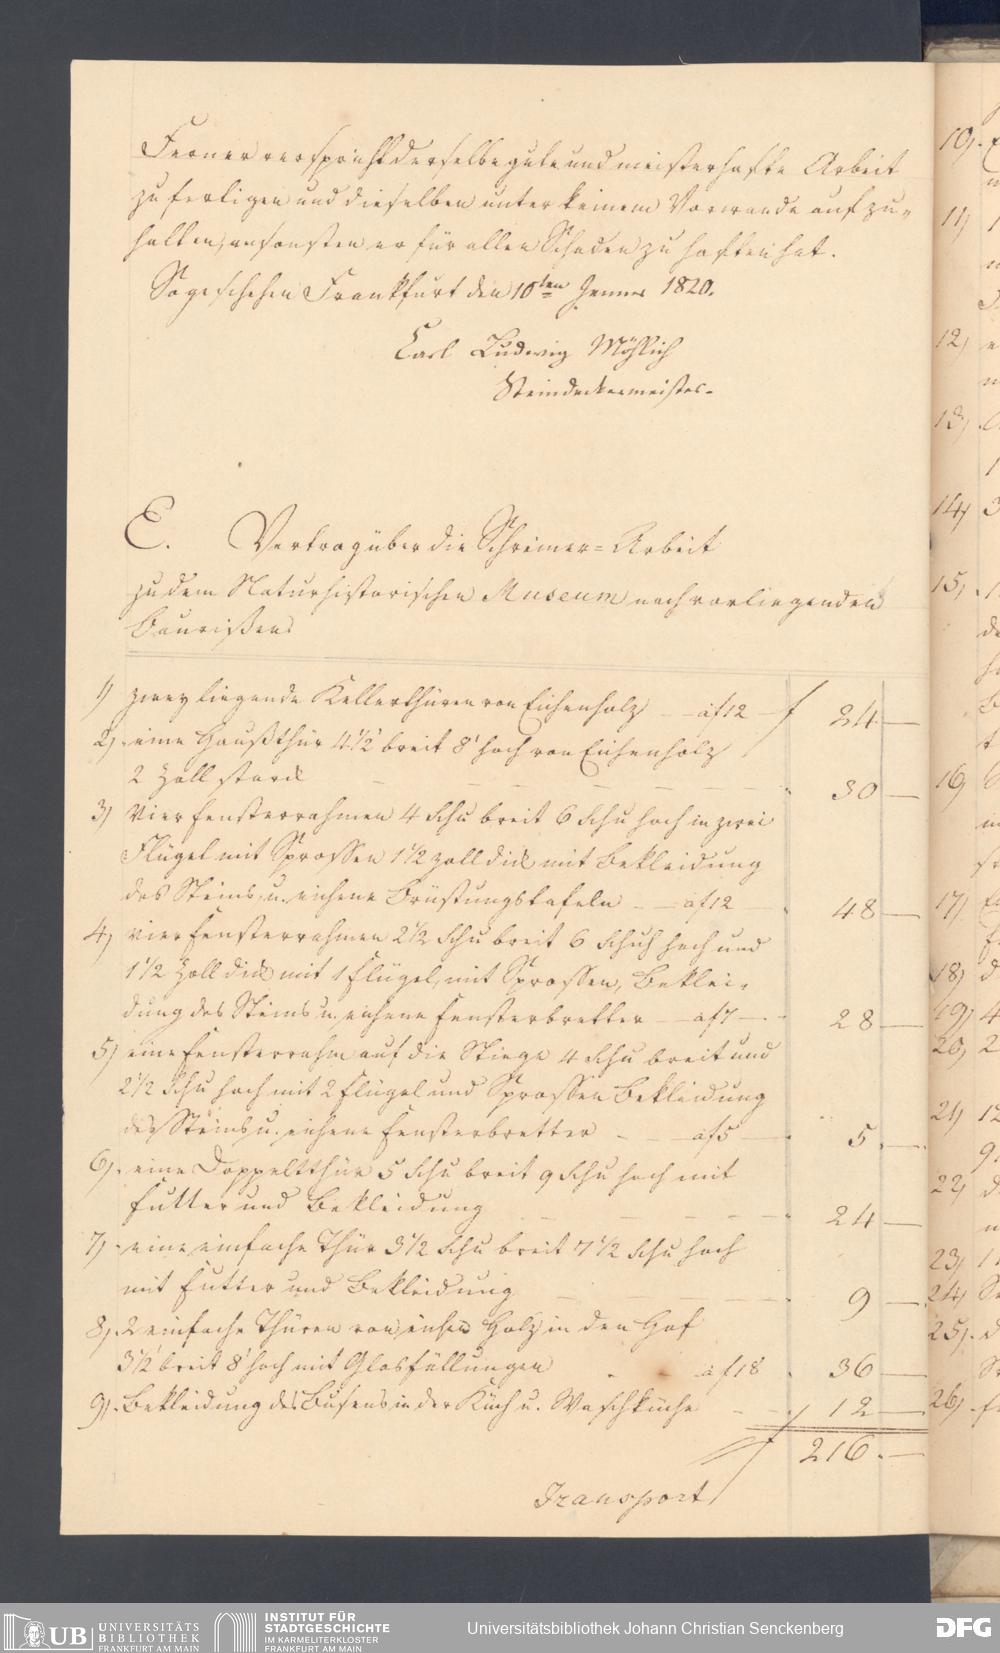 Ferner verspricht derselbe gute und meisterhafte Arbeit
zu fertigen und dieselben unter keinem Vorwande aufzu-
halten, ansonsten er für allen Schaden zu haften hat.
So geschehen Frankfurt den 10ten Jenner 1820.
Carl Ludwig
Steindeckermeister.
E. Vertrag über die Schreiner=Arbeit
zu dem Naturhistorischen Museum nach vorliegenden
Baurißen
1) zwey liegende Kellerthüren von Eichenholz à f 12 f 24 —
2) eine Haußthür 4½' breit 8' hoch von Eichenholz
2 Zoll starck 30 —
3) Vier Fensterrahmen 4 Schu breit 6 Schu hoch in zwei
Flügel mit Sprossen 1½ zoll dick mit Bekleidung
des Steins, u. eichene Brüstungstafeln à f 12 48 —
4) vier Fensterrahmen 2½ Schu breit 6 Schuh hoch und
1½ Zoll dick mit 1 Flügel, mit Sprossen, Beklei-
dung des Steins u. eichene Fensterbretter à f 7 28 —
5) eine Fensterrahm auf die Stiege 4 Schu breit und
2½ Schu hoch mit 2 Flügel und Sprossen Bekleidung
des Steins, u. eichene Fensterbretter à f 5 5 —
6) eine Doppeltthür 5 Schu breit 9 Schu hoch mit
Futter und Bekleidung 24 —
7) eine einfache Thür 3½ Schu breit 7½ Schu hoch
mit Futter und Bekleidung 9 —
8) 2 einfache Thüren von eichen Holz in den Hof
3½' breit 8' hoch mit Glasfüllungen à f 18 36 —
9) Bekleidung des Busens in der Küch u. Waschküche 12 —
f 216 —
Transport
10)
11)
12)
13)
14)
15)
16)
17)
18)
19)
20)
21)
22)
23)
24)
25)
26)
UB UNIVERSITÄTS
BIBLIOTHEK
FRANKFURT AM MAIN
INSTITUT FÜR
STADTGESCHICHTE
IM KARMELITERKLOSTER
FRANKFURT AM MAIN
Universitätsbibliothek Johann Christian Senckenberg
DFG